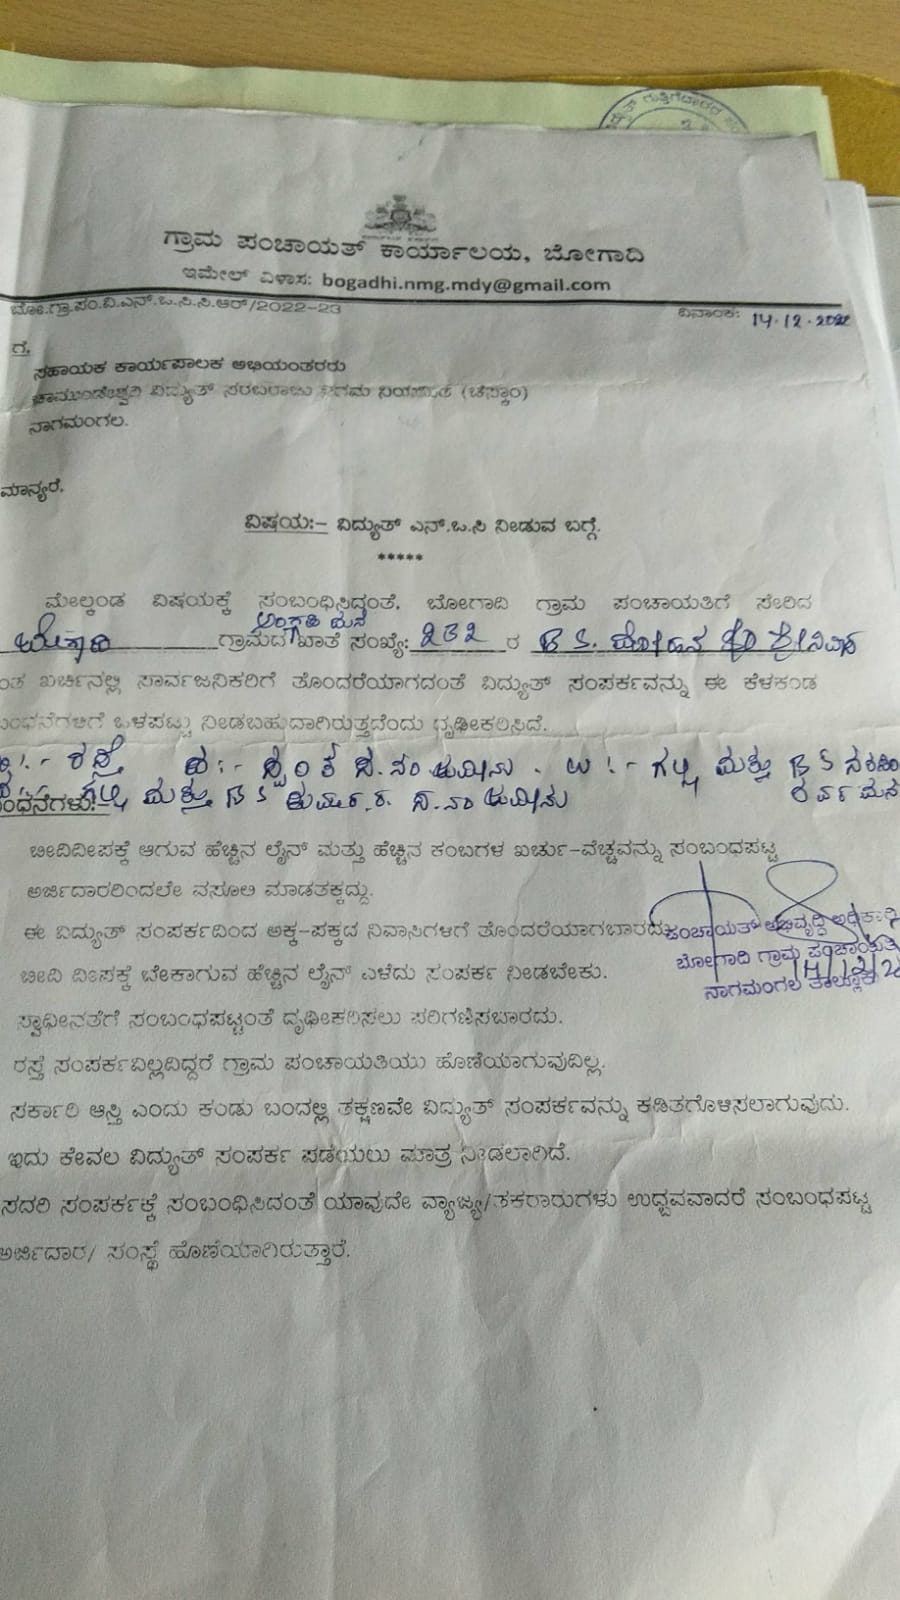 ಗ್ರಾಮ ಪಂಚಾಯತ್ ಕಾರ್ಯಾಲಯ, ಬೋಗಾದಿ
ಇಮೇಲ್ ವಿಳಾಸ: bogadhi.nmg.mdy@gmail.com
ಬೋ.ಗ್ರಾ.ಪಂ.ವಿ.ಎನ್.ಒ.ಸಿ.ಸಿ.ಆರ್/2022-23 ದಿನಾಂಕ: 14.12.2022
ಗೆ,
ಸಹಾಯಕ ಕಾರ್ಯಪಾಲಕ ಅಭಿಯಂತರರು
ಚಾಮುಂಡೇಶ್ವರಿ ವಿದ್ಯುತ್ ಸರಬರಾಜು ನಿಗಮ ನಿಯಮಿತ (ಚೆಸ್ಕಾಂ)
ನಾಗಮಂಗಲ.
ಮಾನ್ಯರೆ,
ವಿಷಯ:- ವಿದ್ಯುತ್ ಎನ್.ಒ.ಸಿ ನೀಡುವ ಬಗ್ಗೆ.
*****
ಮೇಲ್ಕಂಡ ವಿಷಯಕ್ಕೆ ಸಂಬಂಧಿಸಿದಂತೆ, ಬೋಗಾದಿ ಗ್ರಾಮ ಪಂಚಾಯತಿಗೆ ಸೇರಿದ
ಅಂಗಡಿ ಮನೆ
ಬೋಗಾದಿ ಗ್ರಾಮದ ಖಾತೆ ಸಂಖ್ಯೆ: 232 ರ B S. ಮೋಹನ ಶ್ರೀನಿವಾಸ
ಖರ್ಚಿನಲ್ಲಿ ಸಾರ್ವಜನಿಕರಿಗೆ ತೊಂದರೆಯಾಗದಂತೆ ವಿದ್ಯುತ್ ಸಂಪರ್ಕವನ್ನು ಈ ಕೆಳಕಂಡ
ಬಂಧನೆಗಳಿಗೆ ಒಳಪಟ್ಟು ನೀಡಬಹುದಾಗಿರುತ್ತದೆಂದು ದೃಢೀಕರಿಸಿದೆ.
ರಸ್ತೆ ಪ:- ಸ.ನಂ ಜಮೀನು. ಉ:- ಗಲ್ಲಿ ಮತ್ತು B S
ಗಲ್ಲಿ ಮತ್ತು B S ಕುಮಾರ.ರ. ಸ.ನಂ ಜಮೀನು ಮನೆ
ಬಂಧನೆಗಳು:
ಬೀದಿದೀಪಕ್ಕೆ ಆಗುವ ಹೆಚ್ಚಿನ ಲೈನ್ ಮತ್ತು ಹೆಚ್ಚಿನ ಕಂಬಗಳ ಖರ್ಚು-ವೆಚ್ಚವನ್ನು ಸಂಬಂಧಪಟ್ಟ
ಅರ್ಜಿದಾರರಿಂದಲೇ ವಸೂಲಿ ಮಾಡತಕ್ಕದ್ದು.
ಈ ವಿದ್ಯುತ್ ಸಂಪರ್ಕದಿಂದ ಅಕ್ಕ-ಪಕ್ಕದ ನಿವಾಸಿಗಳಿಗೆ ತೊಂದರೆಯಾಗಬಾರದು.
ಪಂಚಾಯತ್ ಅಭಿವೃದ್ಧಿ ಅಧಿಕಾರಿ
ಬೋಗಾದಿ ಗ್ರಾಮ ಪಂಚಾಯತಿ
ನಾಗಮಂಗಲ ತಾಲ್ಲೂಕು
ಬೀದಿ ದೀಪಕ್ಕೆ ಬೇಕಾಗುವ ಹೆಚ್ಚಿನ ಲೈನ್ ಎಳೆದು ಸಂಪರ್ಕ ನೀಡಬೇಕು.
ಸ್ವಾಧೀನತೆಗೆ ಸಂಬಂಧಪಟ್ಟಂತೆ ದೃಢೀಕರಿಸಲು ಪರಿಗಣಿಸಬಾರದು.
ರಸ್ತೆ ಸಂಪರ್ಕವಿಲ್ಲದಿದ್ದರೆ ಗ್ರಾಮ ಪಂಚಾಯತಿಯು ಹೊಣೆಯಾಗುವುದಿಲ್ಲ.
ಸರ್ಕಾರಿ ಆಸ್ತಿ ಎಂದು ಕಂಡು ಬಂದಲ್ಲಿ ತಕ್ಷಣವೇ ವಿದ್ಯುತ್ ಸಂಪರ್ಕವನ್ನು ಕಡಿತಗೊಳಿಸಲಾಗುವುದು.
ಇದು ಕೇವಲ ವಿದ್ಯುತ್ ಸಂಪರ್ಕ ಪಡೆಯಲು ಮಾತ್ರ ನೀಡಲಾಗಿದೆ.
ಸದರಿ ಸಂಪರ್ಕಕ್ಕೆ ಸಂಬಂಧಿಸಿದಂತೆ ಯಾವುದೇ ವ್ಯಾಜ್ಯ/ತಕರಾರುಗಳು ಉದ್ಭವವಾದರೆ ಸಂಬಂಧಪಟ್ಟ
ಅರ್ಜಿದಾರ/ ಸಂಸ್ಥೆ ಹೊಣೆಯಾಗಿರುತ್ತಾರೆ.